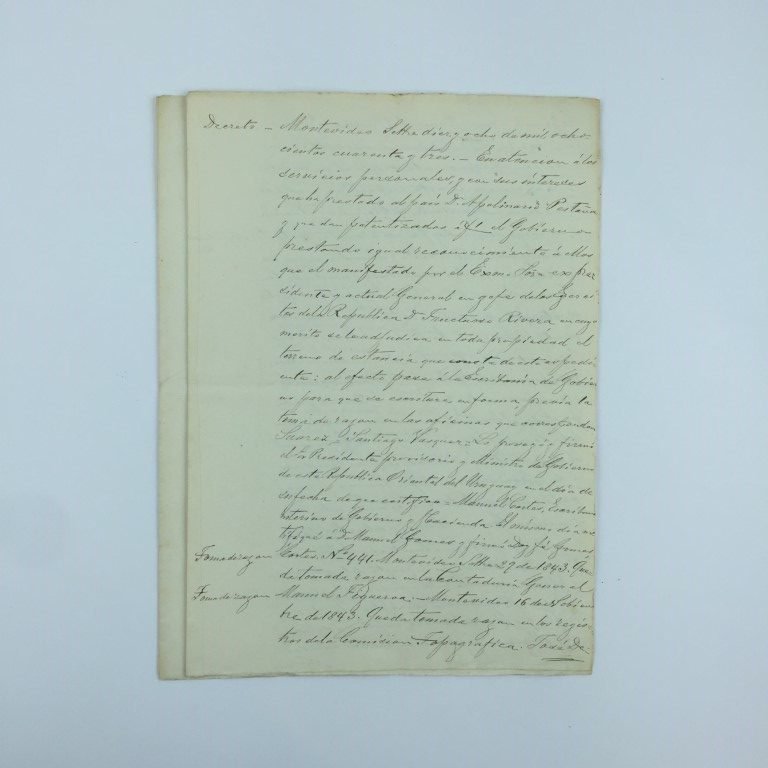 Decreto - Montevideo Setbre diez y ocho de mil ocho-
cientos cuarenta y tres. - En atencion á los
servicios personales, y con sus intereses
que ha prestado al pais D. Apolinario Pestaña
y quedan patentizados á el Gobierno
prestando igual reconocimiento á ellos
que el manifestado por el Exmo. Sor. ex pre-
sidente y actual General en gefe de los Egerci-
tos de la Republica D. Fructuoso Rivera en cuyo
merito se le adjudica en toda propiedad el
terreno de estancia que consta de este espedi-
ente: al efecto pase á la Escribania de Gobier-
no para que se escriture en forma, previa la
toma de razon en las oficinas que corresponden
Suarez - Santiago Vasquez = Lo proveyó y firmó
el Sr. Presidente provisorio y Ministro de Gobierno
de esta Republica Oriental del Uruguay en el dia de
su fecha de que certifico = Manuel Cortes, Escribano
interino de Gobierno y Hacienda El mismo dia no-
tifiqué á D. Manuel Gomes y firmó Doy fé Gomes
Toma de razon Cortes. No. 441. Montevideo Stbre 29 de 1843. Que-
da tomada razon en la Contaduria General
Toma de razon Manuel Figueroa. - Montevideo 16 de Nobiem-
bre de 1843. Queda tomada razon en los regis-
tros de la Comision Topografica. José De-